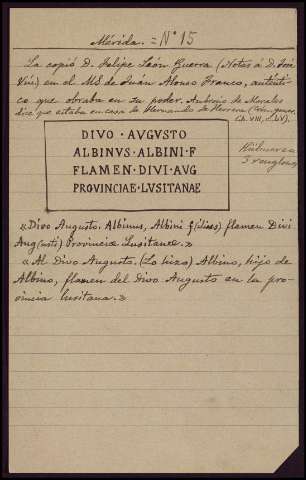 Mérida. = Nº 15
La copió D. Felipe León Guerra (Notas á D. José
Viu) en el MS. de Juán Alonso Franco, auténti-
co que obraba en su poder. Ambrosio de Morales
dice que estaba en casa de Hernando de Herrera
Ch. VIII, c. LV).
DIVO · AVGVSTO
ALBINVS · ALBINI · F
FLAMEN · DIVI · AVG
PROVINCIAE · LVSITANAE
3 renglones
«Divo Augusto. Albinus, Albini f(ilius) flamen Divi
Aug(usti) Provinciæ Lusitanæ.»
«Al Divo Augusto. (Lo hizo) Albino, hijo de
Albino, flamen del Divo Augusto en la pro-
vincia lusitana.»